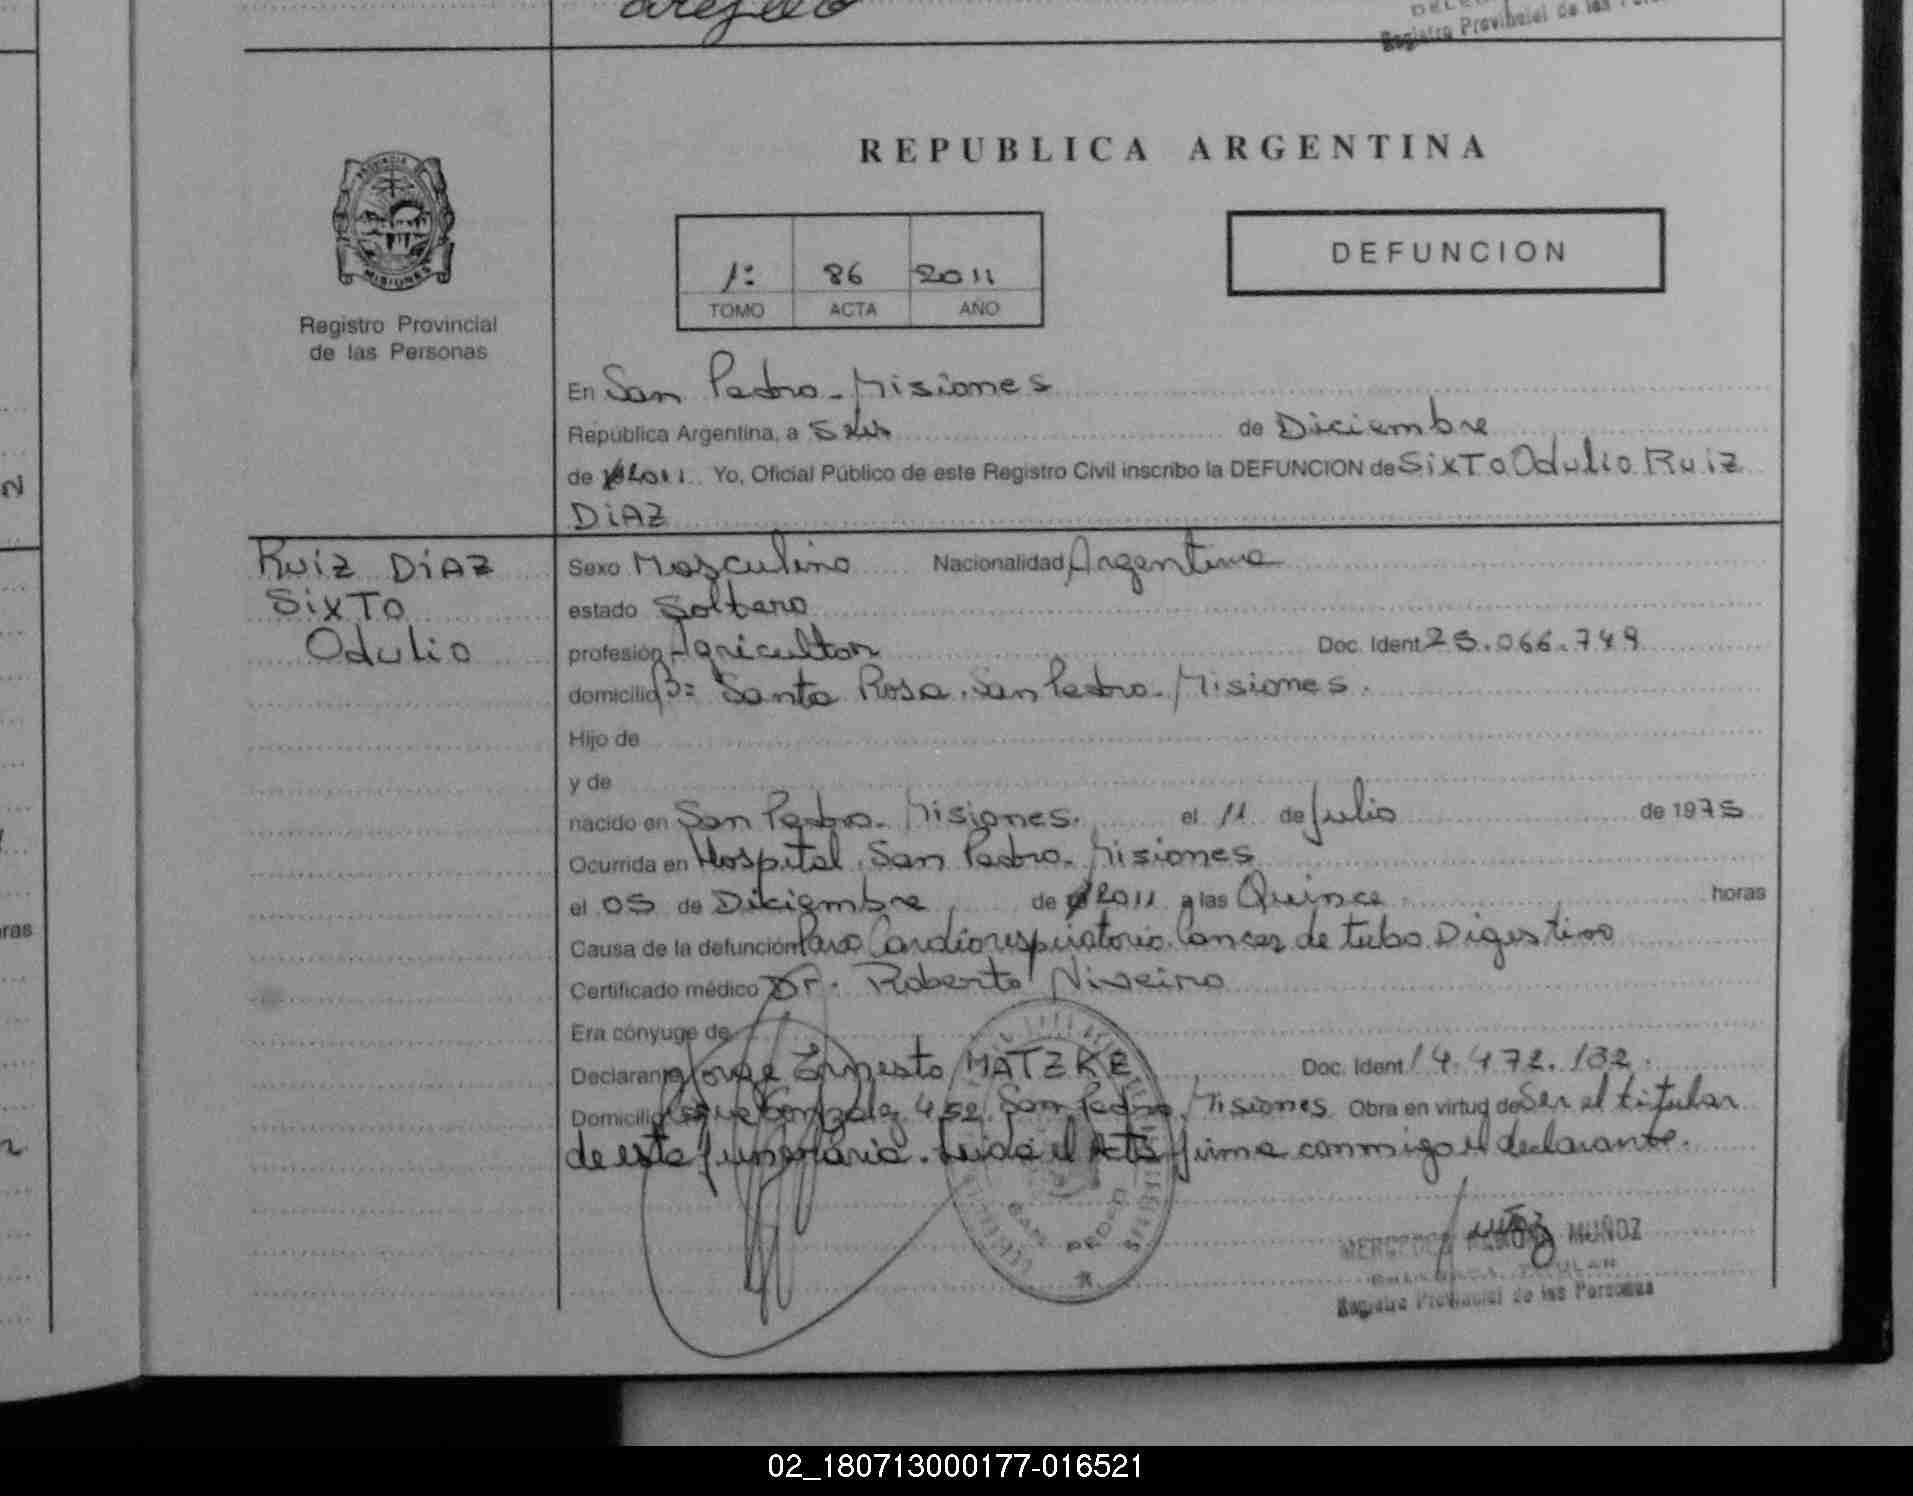 Registro Provincial de las
REPUBLICA ARGENTINA
PROVINCIA
MISIONES
Registro Provincial
de las Personas
1º 86 2011
TOMO ACTA AÑO
DEFUNCION
En San Pedro - Misiones
República Argentina, a Seis de Diciembre
de 2011 Yo, Oficial Público de este Registro Civil inscribo la DEFUNCION de Sixto Odulio Ruiz
DiAZ
Ruiz DiAZ
SixTo
Odulio
Sexo Masculino Nacionalidad Argentina
estado Soltero
profesión Agricultor Doc. Ident 25.066.749
domicilio Bº Santa Rosa. San Pedro - Misiones.
Hijo de
y de
nacido en San Pedro - Misiones. el 11 de Julio de 1975
Ocurrida en Hospital San Pedro - Misiones
el 05 de Diciembre de 2011 a las Quince horas
Causa de la defunción Paro Cardiorespiratorio. Cancer de tubo Digestivo
Certificado médico Dr. Roberto Niveiro
Era cónyuge de
Declarante Jorge Ernesto MATZKE Doc. Ident 14.472.132.
Domicilio Gonzalez 452 San Pedro, Misiones Obra en virtud de Ser el titular
de esta funeraria. Leida el Acta firma conmigo el declarante.
SAN PEDRO
MERCEDES MUÑOZ
Registro Provincial de las Personas
ras
02_180713000177-016521